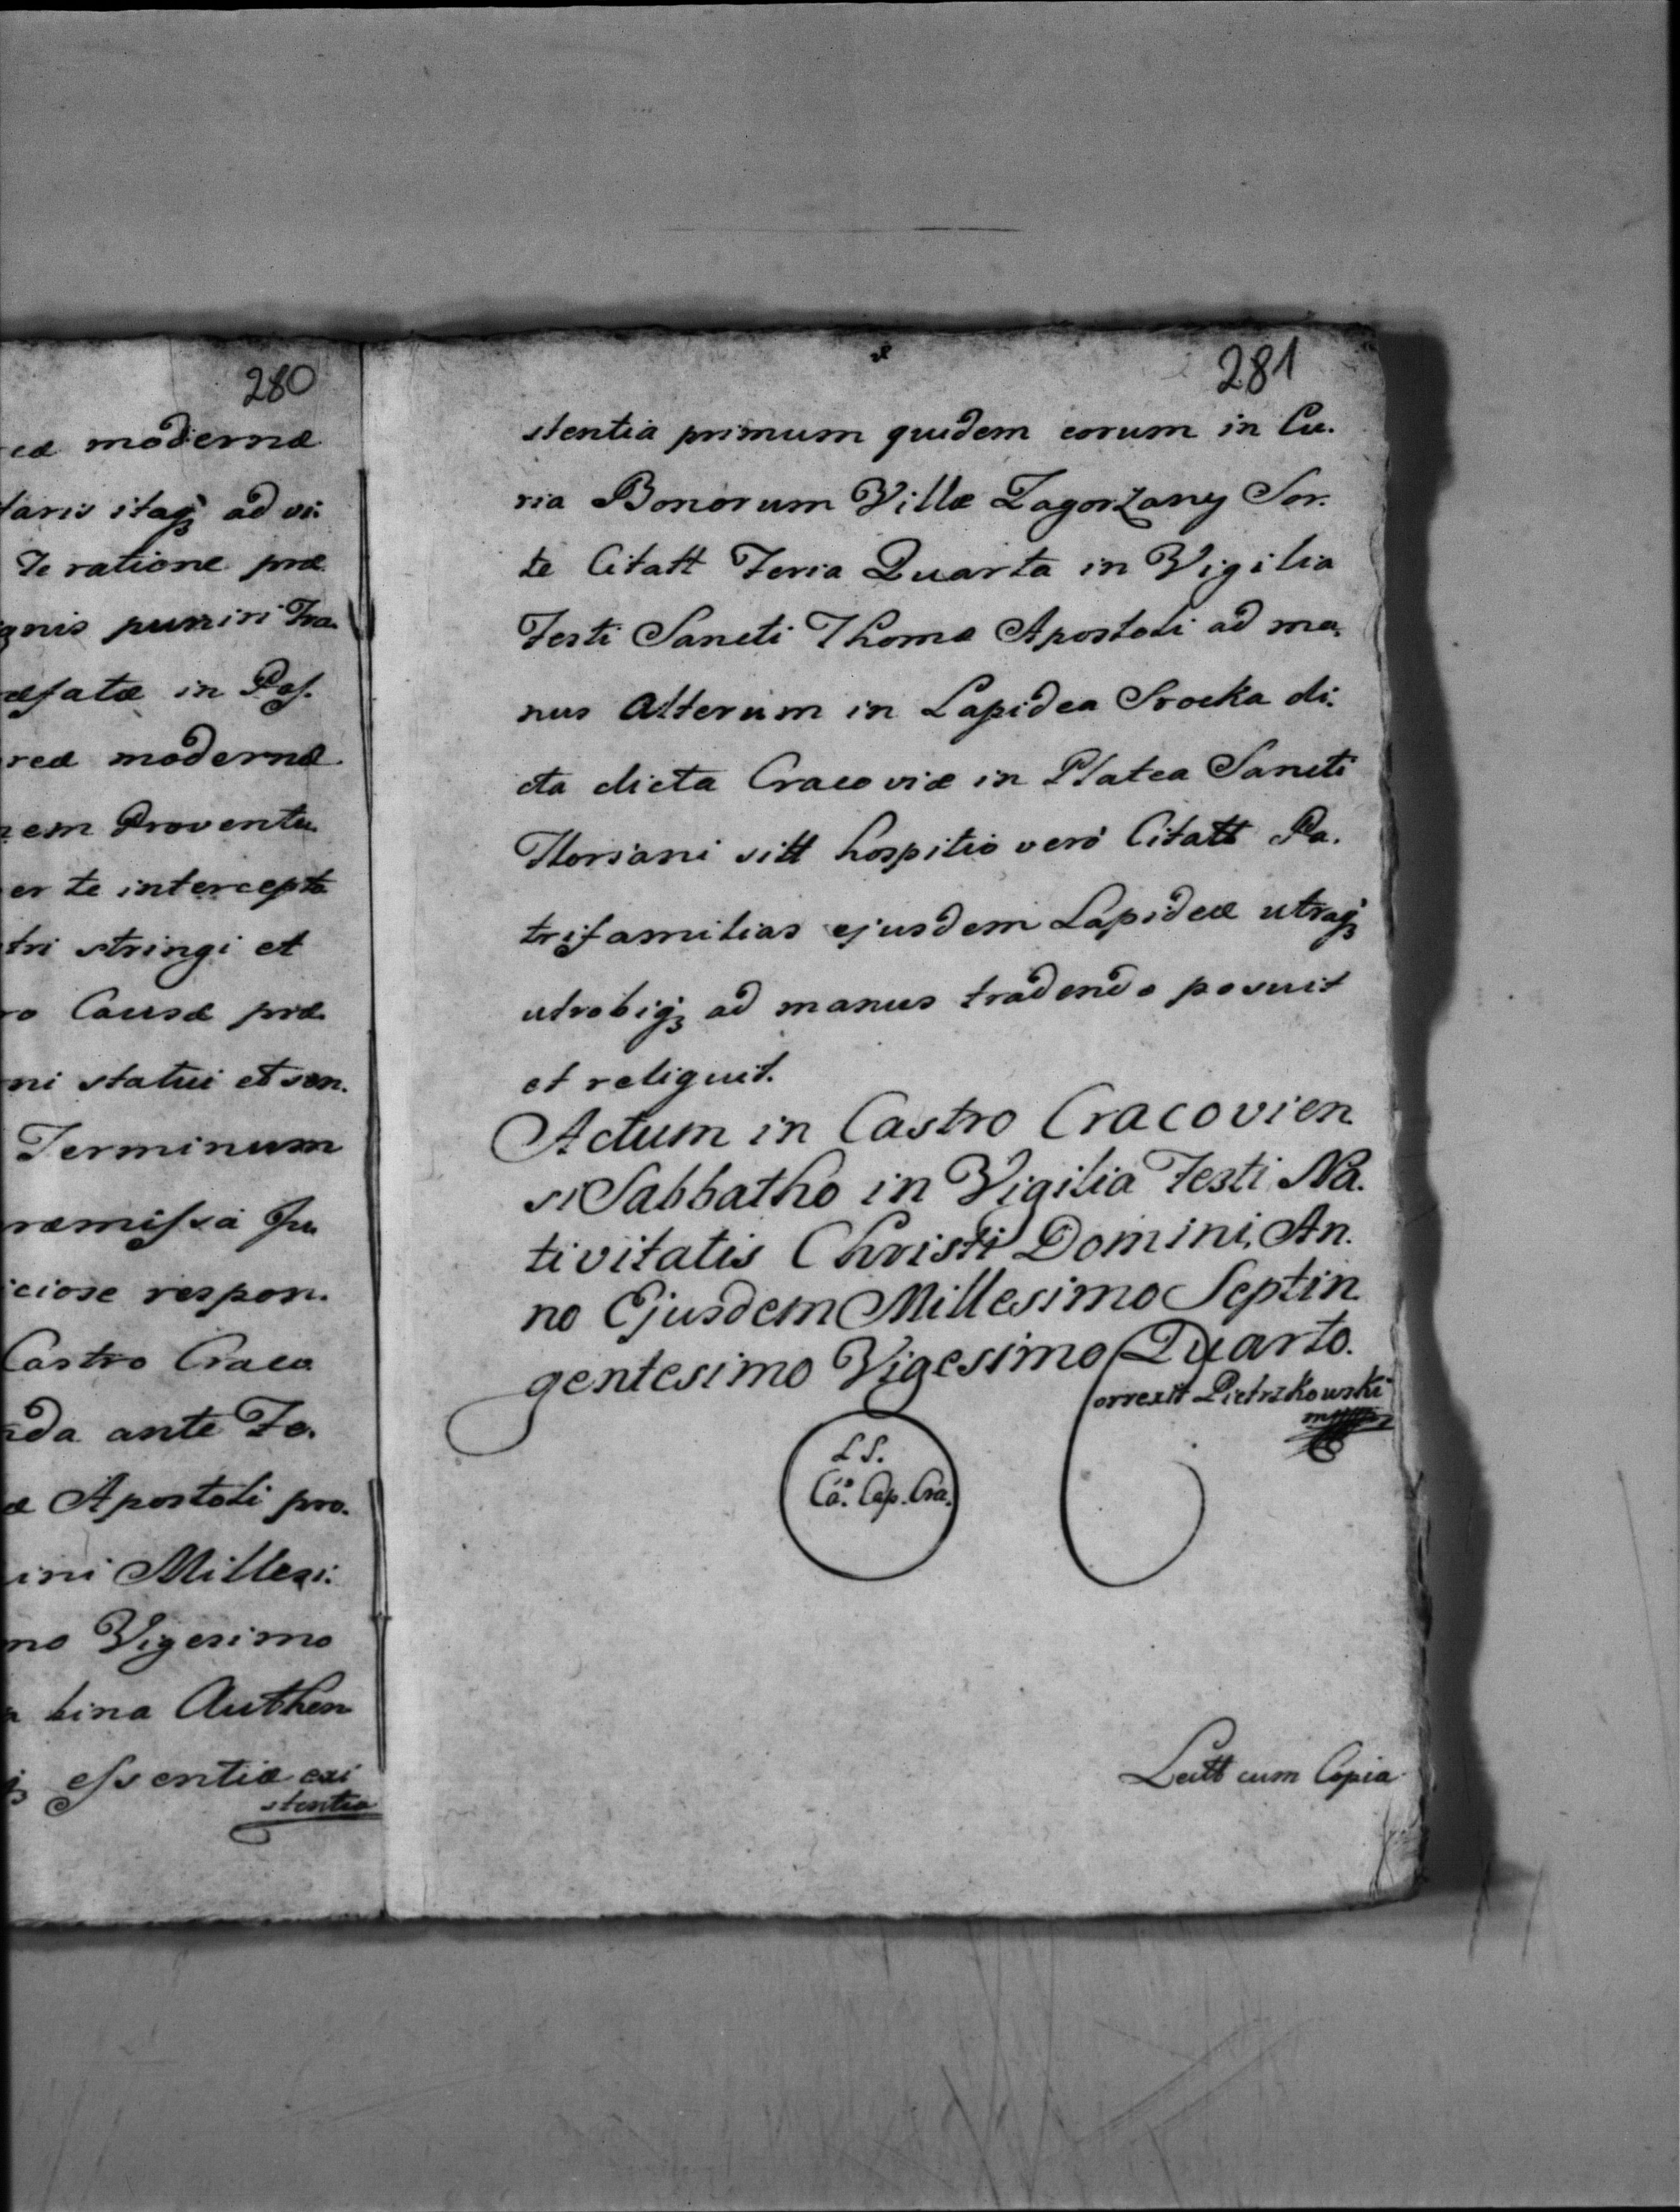 280
moderna
itaq₃ ad vi:
te ratione præ
puniri Tra.
in Pos.
moderna
Proventu
er te intercepto
tri stringi et
ro Causæ præ
ni statui et sen.
Terminum
ræmissa Ju
iciose respon.
Castro Craco
da ante Fe.
æ Apostoli pro.
ini Millesi:
mo Vigesimo
bina Authen
essentiæ exi
stentia
281
stentia primum quidem eorum in Cu.
ria Bonorum Villæ Zagorzany Sor.
te Citatt Feria Quarta in Vigilia
Festi Sancti Thomæ Apostoli ad ma,
nus Alterum in Lapidea Srocka di:
cta dicta Cracoviæ in Platea Sancti
Floriani sitt hospitio vero Citatt Pa.
trifamilias ejusdem Lapideæ utraq₃
utrobiq₃ ad manus tradendo posuit
et reliquit.
Actum in Castro Cracovien
si Sabbatho in Vigilia Festi Na.
tivitatis Christi Domini, An.
no Ejusdem Millesimo Septin
gentesimo Vigesimo Quarto.
Correxit Pietrzkowski
mp
L S.
Cap. Cra.
Lectt cum Copia